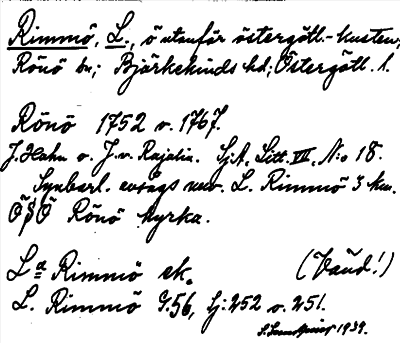 Rimmö, L., ö utanför östergötl.-kusten,
Rönö sn; Björkekinds hd, Östergötl. l.
Rönö 1752 o. 1767.
J. Hahn o. J. v. Rajalin. Sj.A, Litt. VII, N:o 18.
Synbarl. avsågs nuv. L. Rimmö 3 km.
ÖSÖ Rönö kyrka.
La Rimmö ek. (Vaud!)
L. Rimmö G.56, Sj: 252 o. 251.
1939.